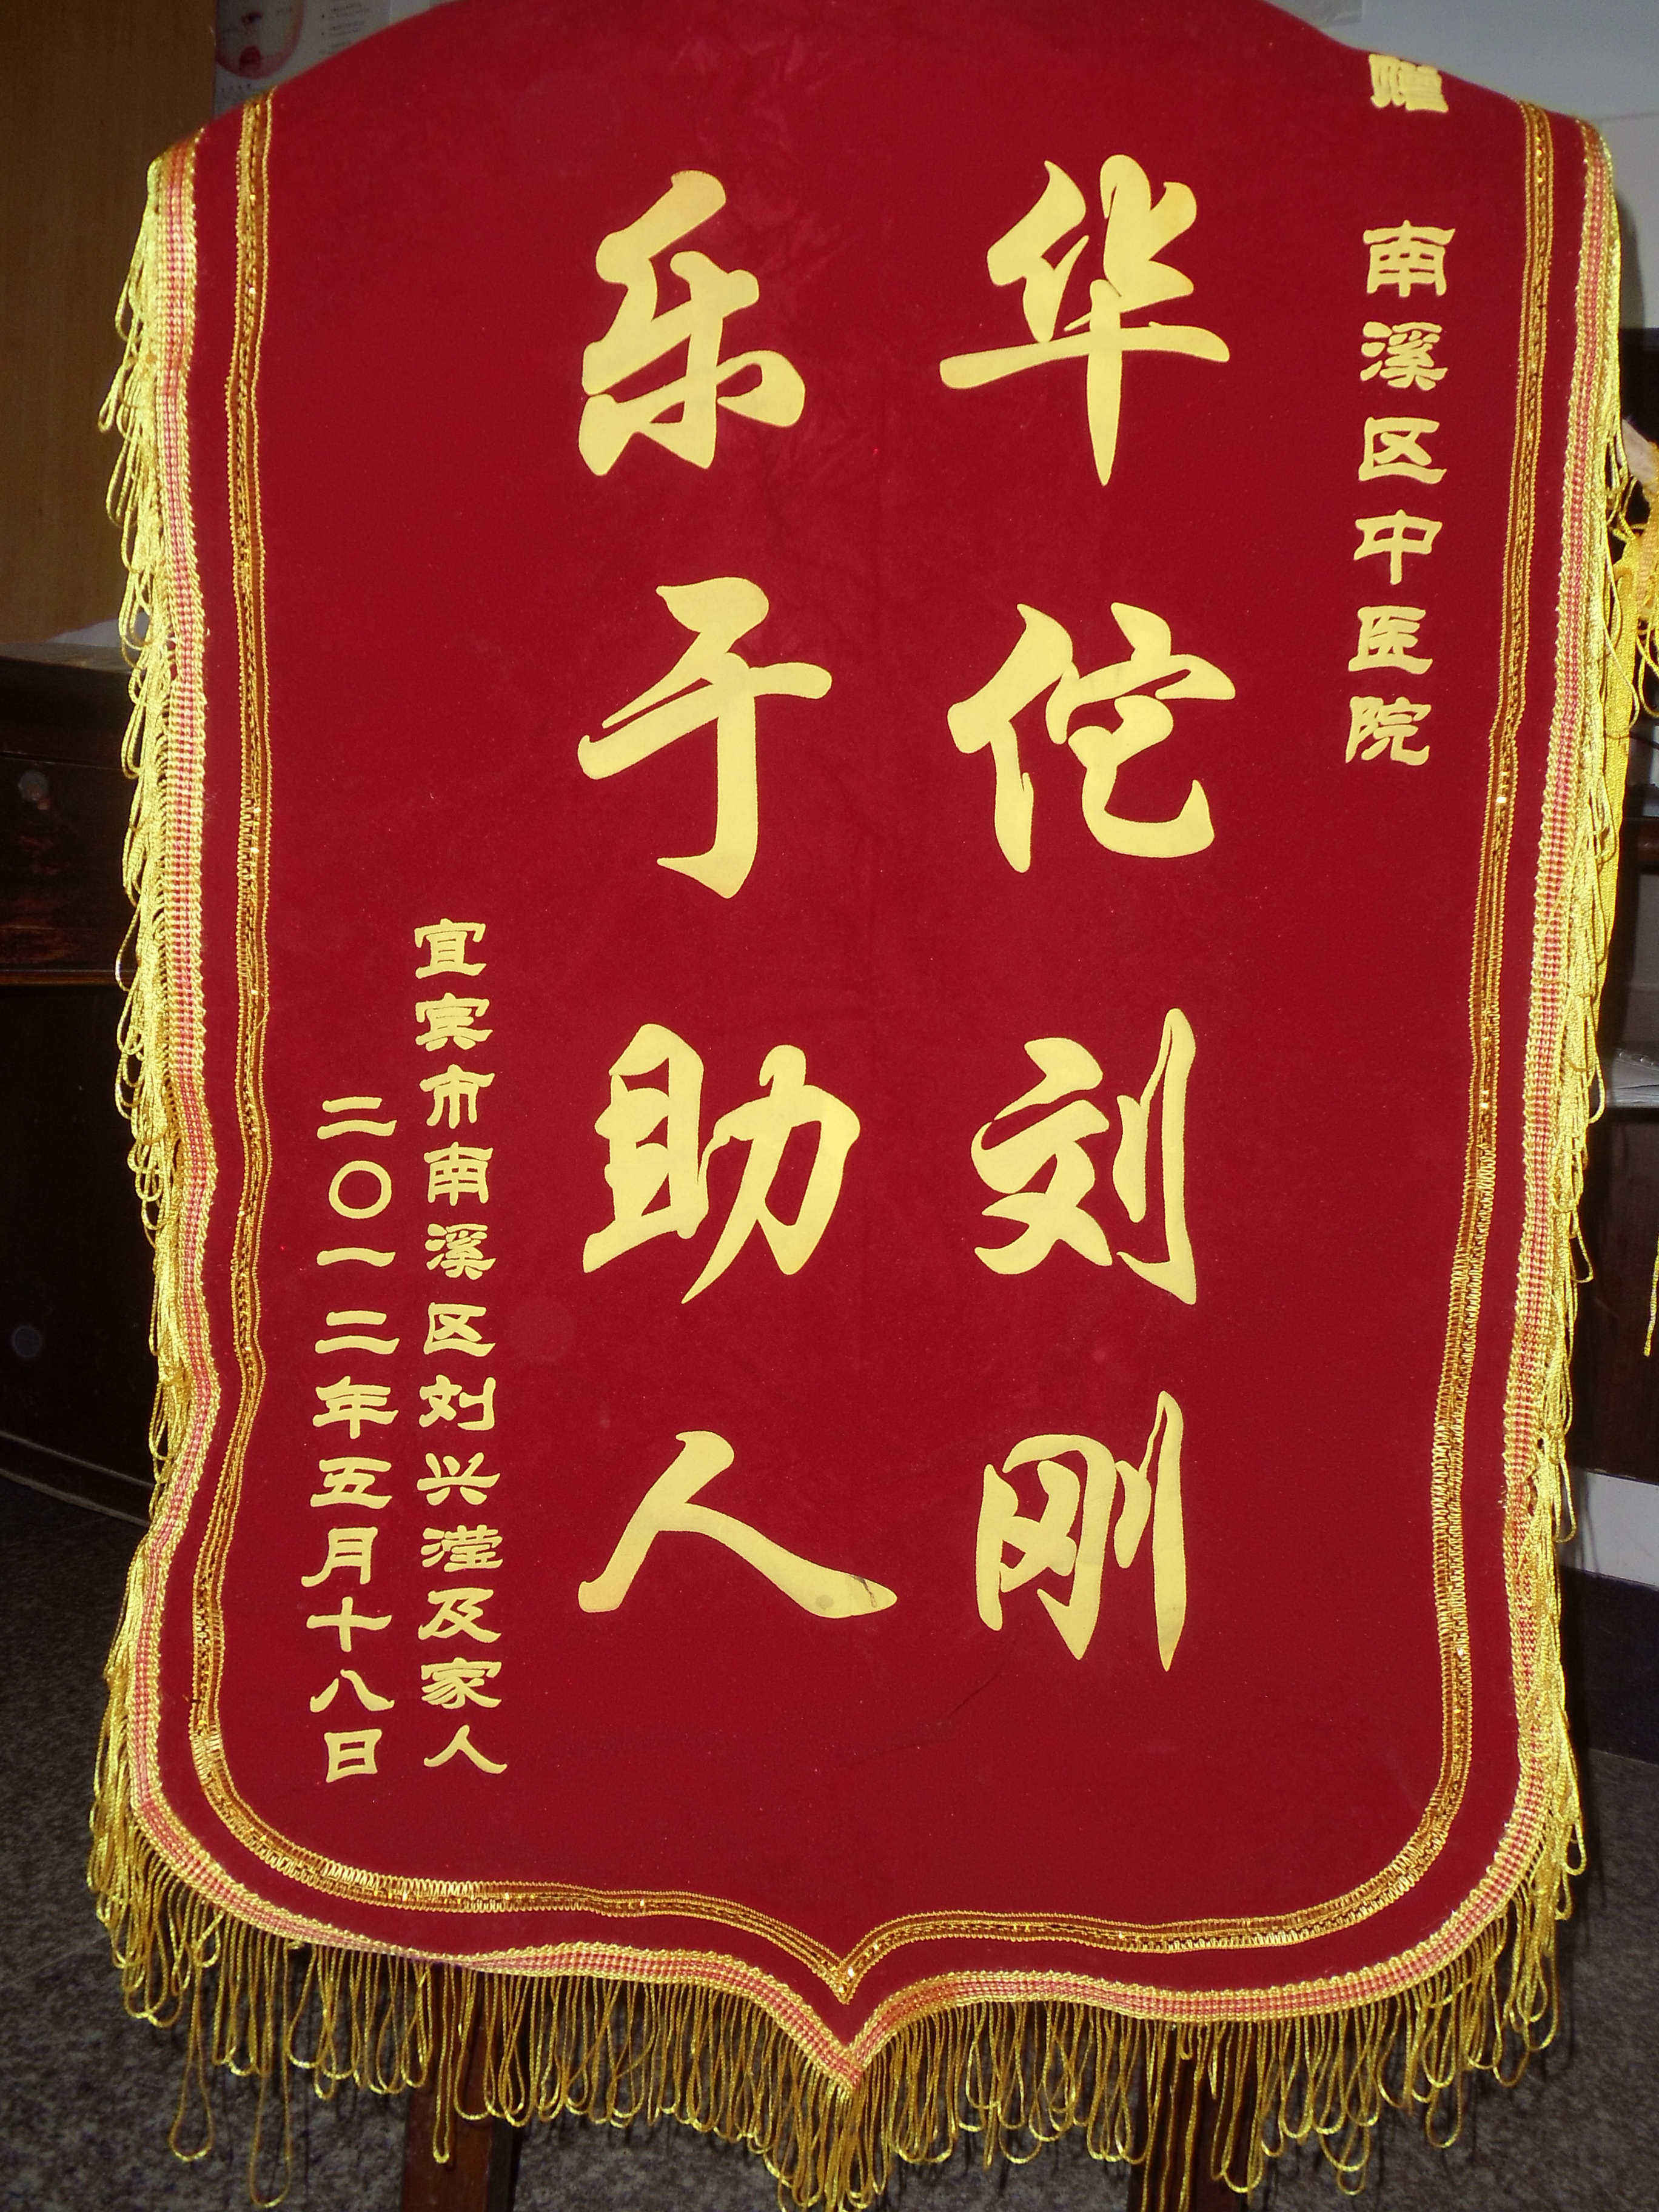 赠
南溪区中医院
华佗刘刚
乐于助人
宜宾市南溪区刘兴滢及家人
二〇一二年五月十八日